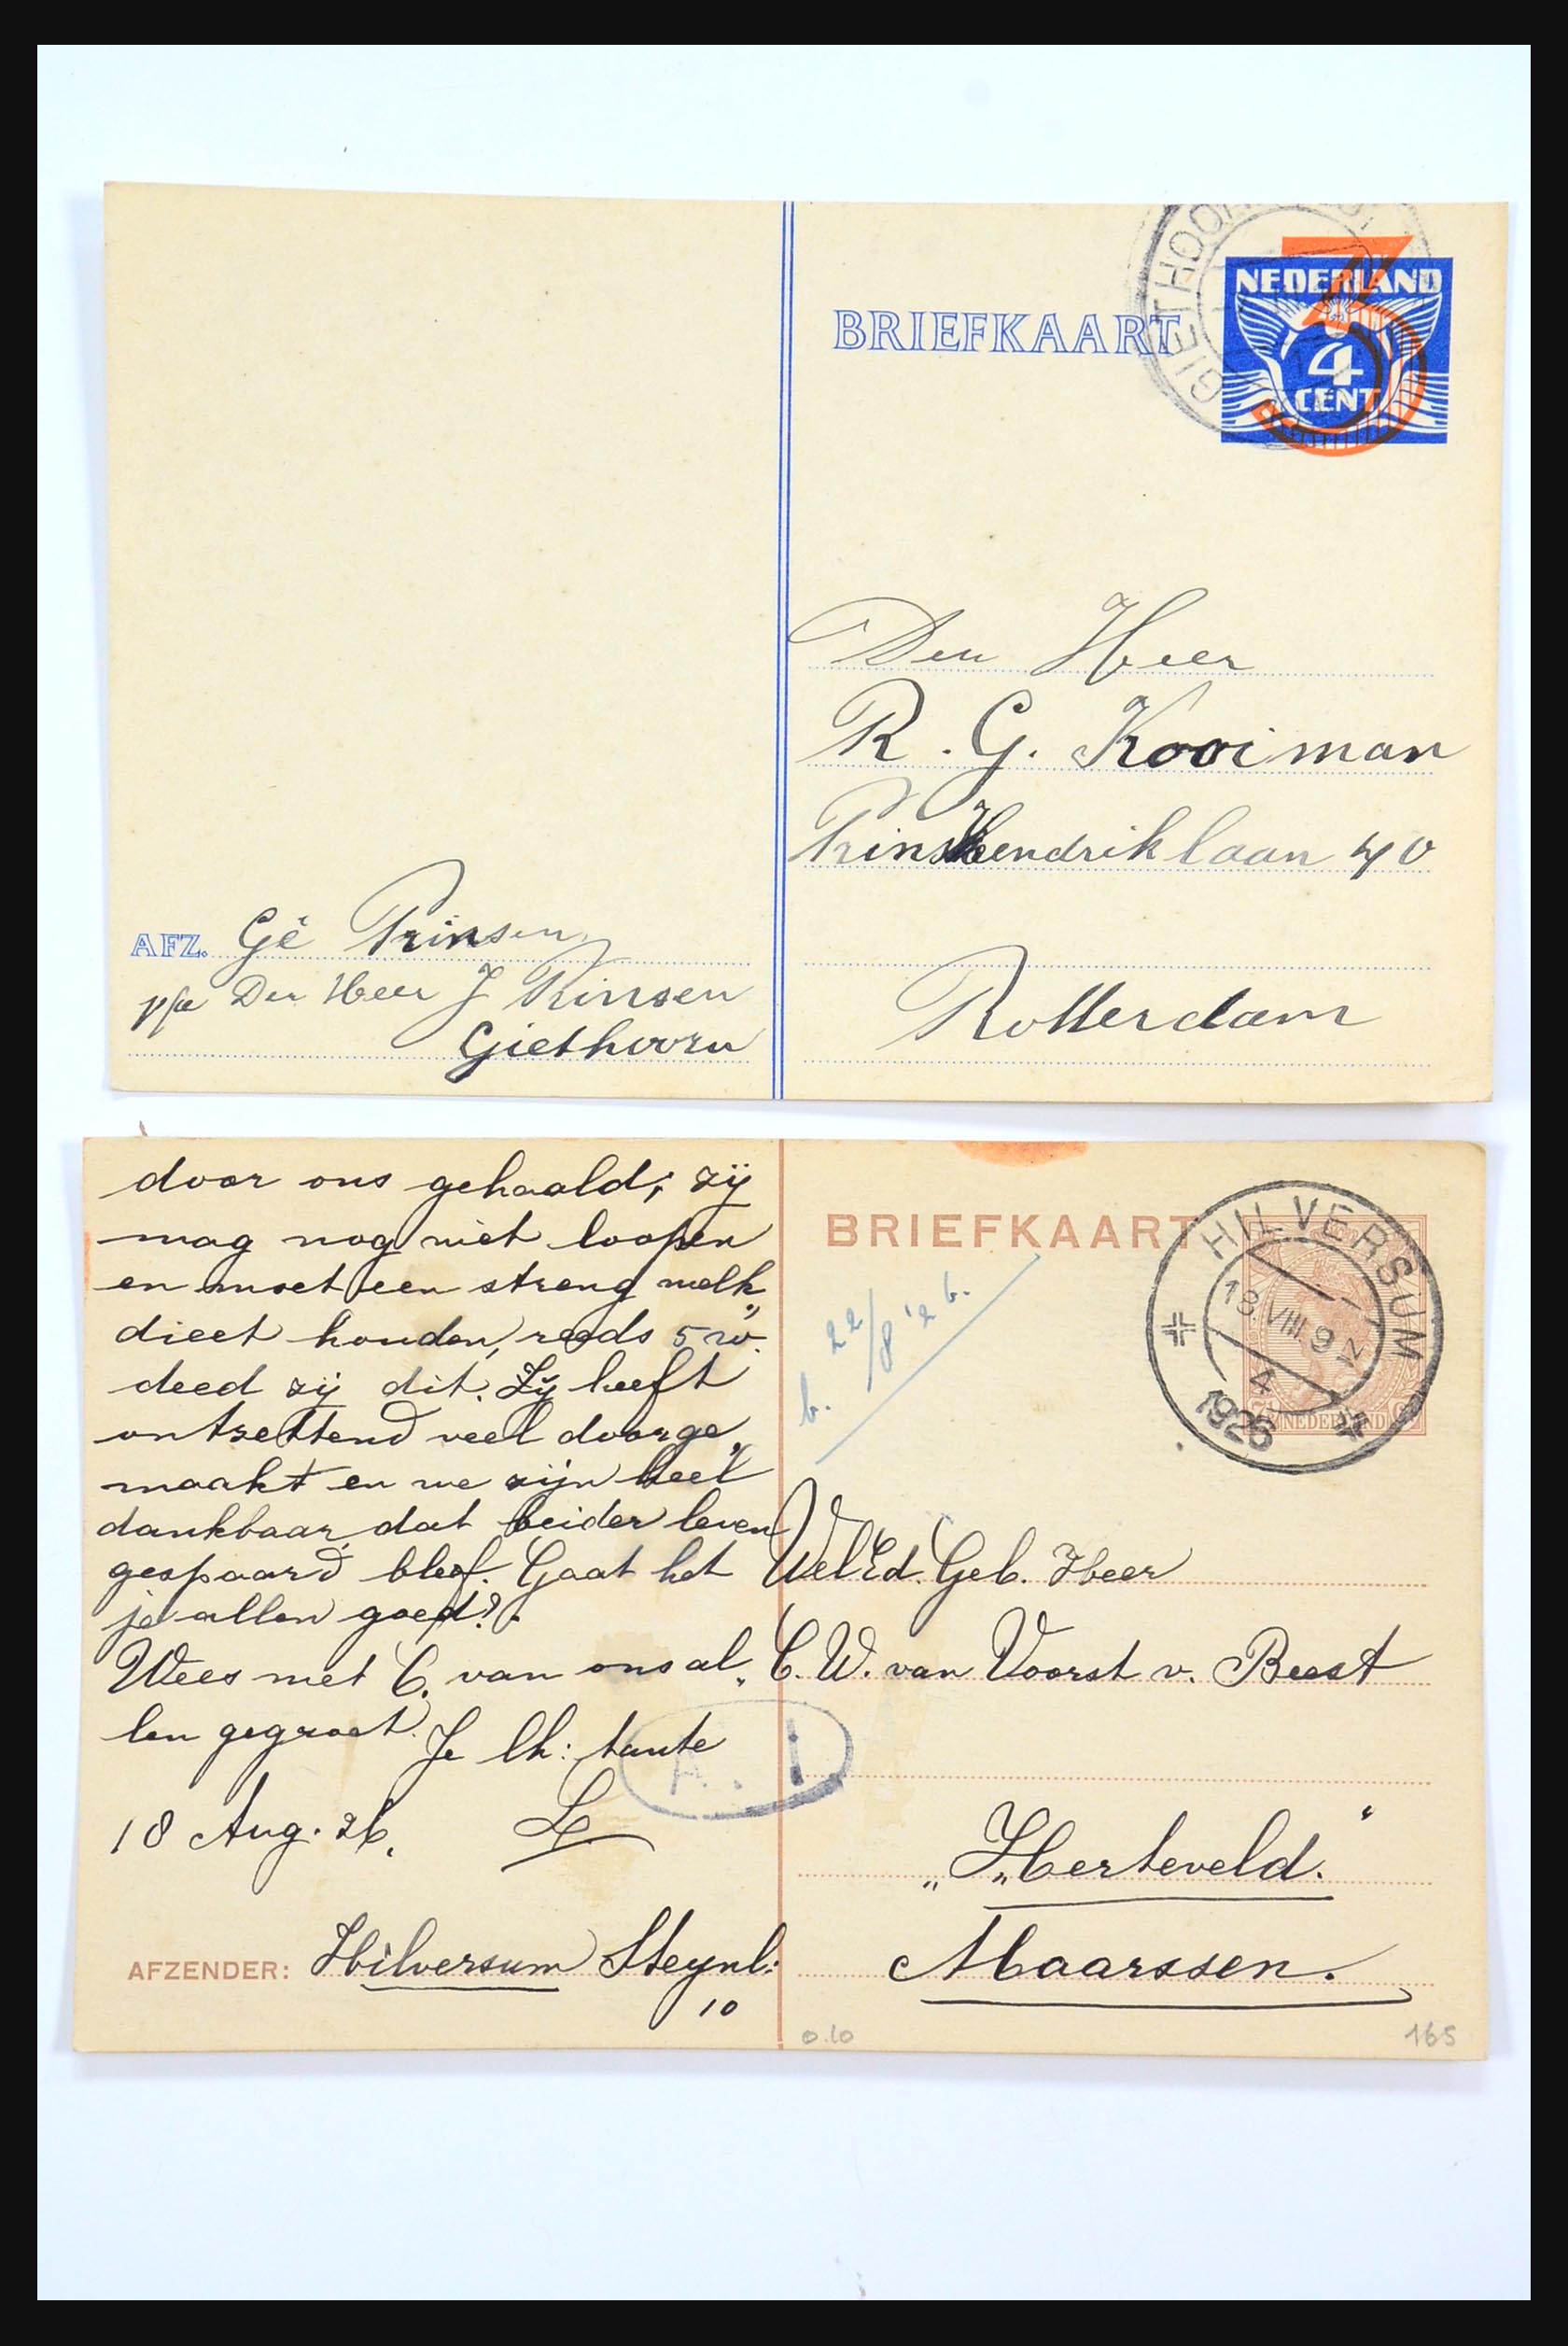 GIETHOORN
BRIEFKAART
NEDERLAND
3
4
CENT
Den Heer
R. G. Kooiman
Prins Hendriklaan 40
Rotterdam
AFZ. Gé Prinsen
p/a Den Heer J Prinsen
Giethoorn
door ons gehaald; zij
mag nog niet loopen
en moet een streng melk„
dieet houden, reeds 5 w.
deed zij dit. Zij heeft
ontzettend veel doorge„
maakt en we zijn heel
dankbaar, dat beider leven
gespaard bleef. Gaat het
je allen goed?
Wees met C. van ons al„
len gegroet.
Je lh: tante
L
18 Aug. 26.
AFZENDER: Hilversum Steynl:
10
BRIEFKAART
HILVERSUM
18.VIII.9
4
1926
NEDERLAND
b. 22/8 '26.
A. 1
WelEd. Geb. Heer
C. W. van Voorst v. Beest
„Herteveld."
Maarssen.
0.10
165